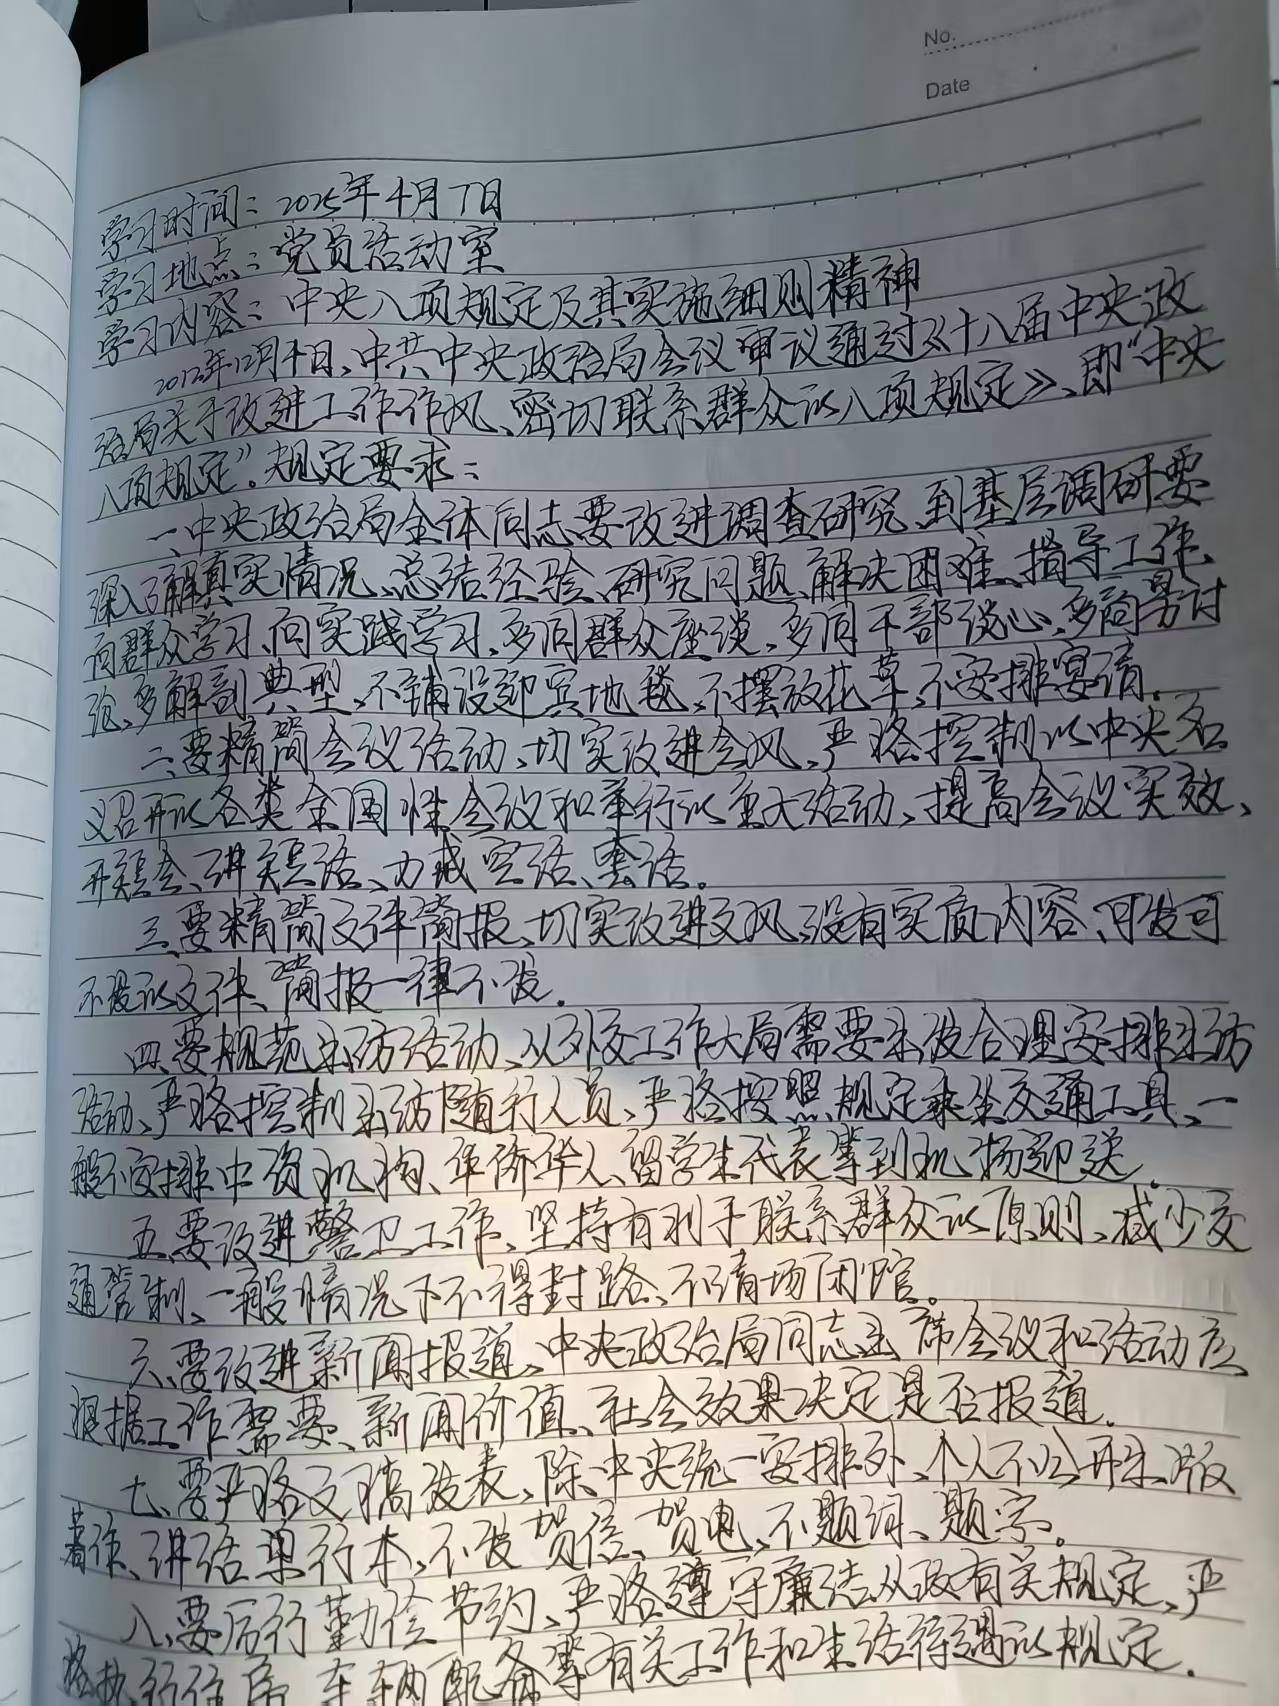 No.
Date
学习时间：2025年4月7日
学习地点：党员活动室
学习内容：中央八项规定及其实施细则精神
2012年12月4日、中共中央政治局会议审议通过《十八届中央政
治局关于改进工作作风、密切联系群众的八项规定》、即“中央
八项规定”。规定要求：
一、中央政治局全体同志要改进调查研究、到基层调研要
深入了解真实情况、总结经验、研究问题、解决困难、指导工作、
向群众学习、向实践学习、多同群众座谈、多同干部谈心、多商量讨
论、多解剖典型、不铺设迎宾地毯、不摆放花草、不安排宴请。
二、要精简会议活动、切实改进会风、严格控制以中央名
义召开的各类全国性会议和举行的重大活动、提高会议实效、
开短会、讲短话、力戒空话、套话。
三、要精简文件简报、切实改进文风、没有实质内容、可发可
不发的文件、简报一律不发。
四、要规范出访活动、从外交工作大局需要出发合理安排出访
活动、严格控制出访随行人员、严格按照规定乘坐交通工具、一
般不安排中资机构、华侨华人、留学生代表等到机场迎送。
五、要改进警卫工作、坚持有利于联系群众的原则、减少交
通管制、一般情况下不得封路、不清场闭馆。
六、要改进新闻报道、中央政治局同志出席会议和活动应
根据工作需要、新闻价值、社会效果决定是否报道。
七、要严格文稿发表、除中央统一安排外、个人不公开出版
著作、讲话单行本、不发贺信、贺电、不题词、题字。
八、要厉行勤俭节约、严格遵守廉洁从政有关规定、严
格执行住房、车辆配备等有关工作和生活待遇的规定。